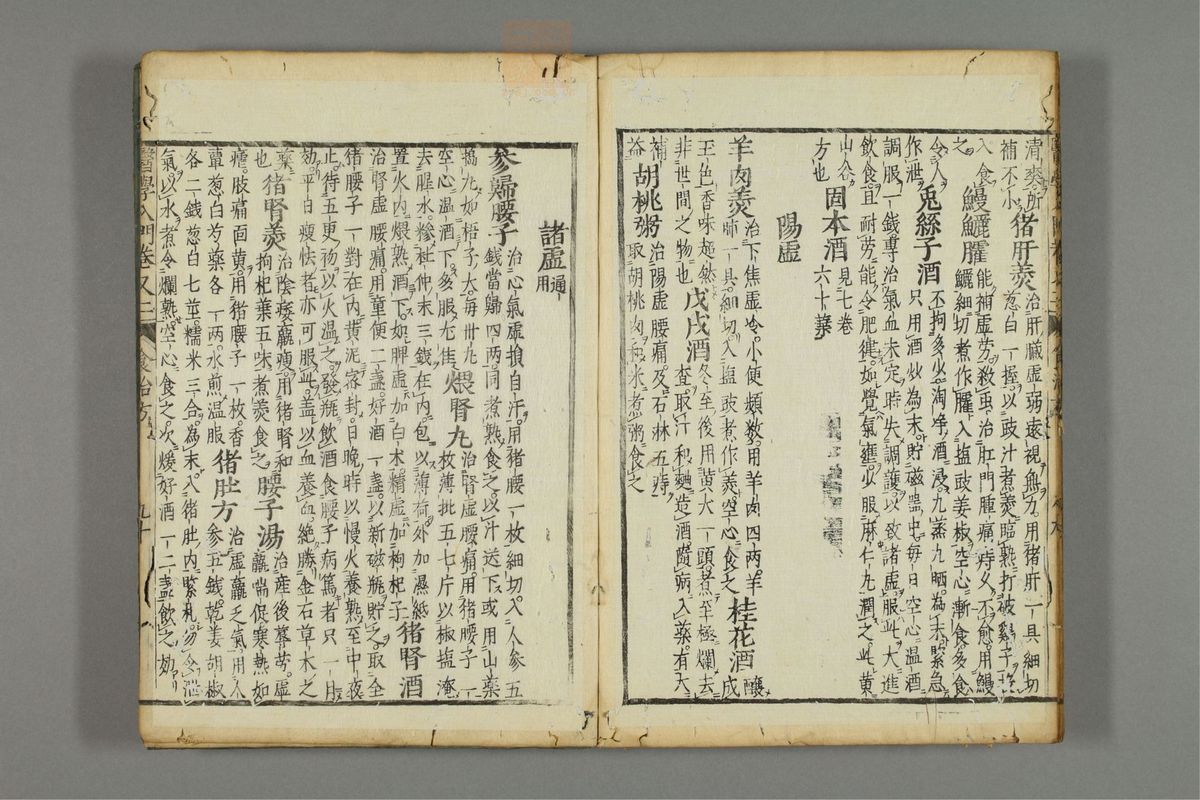 清麥所
補不小 猪肝羮 治肝臟虛弱遠視無力用猪肝一具細切
葱白一握以豉汁煮羮臨熟打破雞子
入食 鰻鱺臛 能補虛劳殺虫治肛門腫痛痔久不愈用鰻
之 鱺細切煮作臛入塩豉姜椒空心漸食多食
令人 兎絲子酒 不拘多少淘净酒浸九蒸九晒為末緊急
作泄 只用酒炒為末貯磁器中每日空心温酒
調服一錢專治氣血未定時失調護以致諸虛服此大進
飲食且耐劳能令肥健如覺氣壅少服麻仁丸潤之此黄
山谷 固本酒 見七卷
方也 六十葉
陽虛
羊肉羮 治下焦虛冷小便頻數用羊肉四两羊
肺一具細切入塩豉煮作羮空心食之 桂花酒 釀
戊
王色香味超然 戊戌酒 冬至後用黄犬一頭煮至極爛去
非世間之物也 查取汁和麵造酒隨病入藥有大
補 胡桃粥 治陽虛腰痛及石淋五痔
益 取胡桃肉和米煮粥食之
諸虛 通
用
參歸腰子 治心氣虛損自汗用猪腰一枚細切入人參五
錢當歸四两同煮熟食之以汁送下或用山藥
搗丸如梧子大每卅丸 煨腎丸 治腎虛腰痛用猪腰子一
空心温酒下多服尤佳 枚薄批五七片以椒塩淹
去腥水糝杜仲末三錢在內包以薄荷外加濕紙 猪腎酒
置火內煨熟酒下如脾虛加白术精虛加枸杞子
治腎虛腰痛用童便二盞好酒一盞以新磁瓶貯之取全
猪腰子一對在內黄泥宻封日晚時以慢火養熟至中夜
止待五更初以火温之發瓶飲酒食腰子病篤者只一月
効平日瘦怯者亦可服此盖以血養血絶勝金石草木之
藥 猪腎羮 治陰痿羸瘦用猪腎和 腰子湯 治産後蓐劳虛
也 枸杞葉五味煮羮食之 羸喘促寒熱如
瘧肢痛面黄用猪腰子一枚香 猪肚方 治虛羸乏氣用人
豉葱白芍藥各一两水煎温服 參五錢乾姜胡椒
各二錢葱白七莖糯米三合為末入猪肚内緊札勿令泄
氣以水煮令爛熟空心食之次煖好酒一二盞飲之効
醫學入門卷又二 食治方 九十